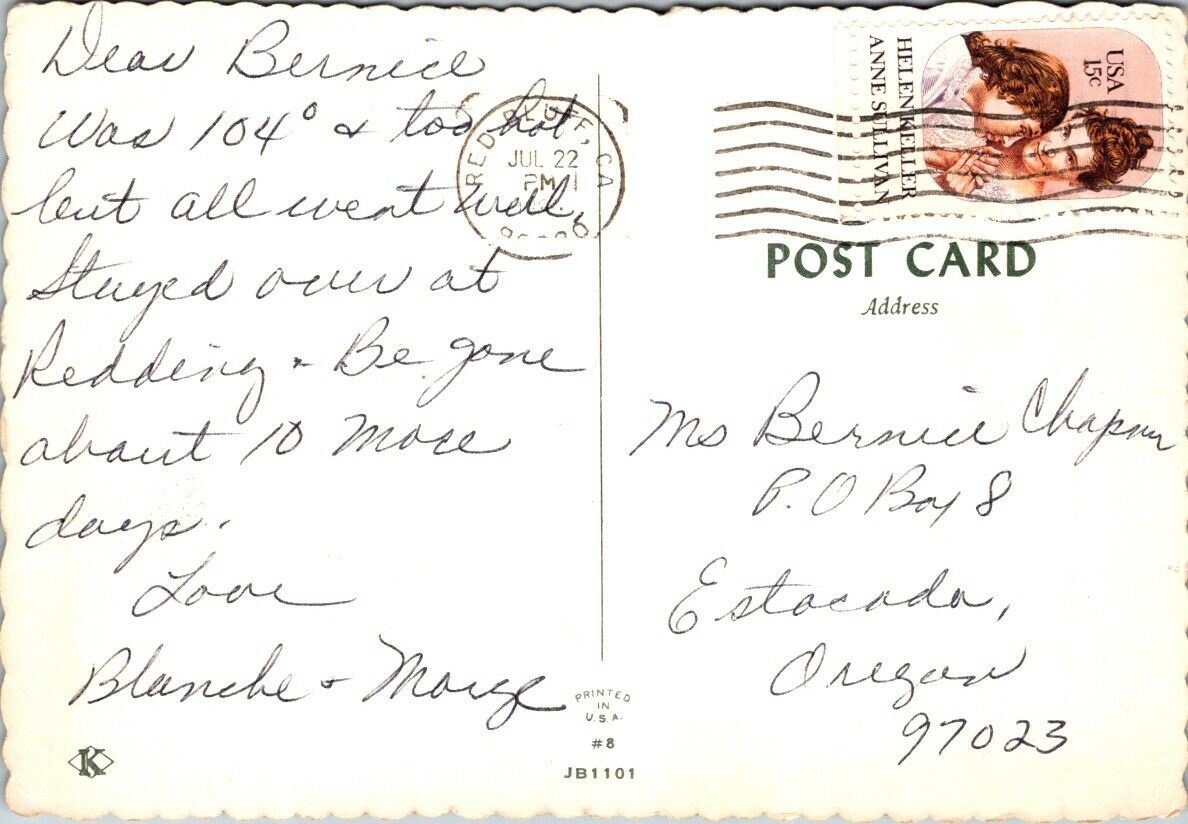 Dear Bernice
Was 104° & too hot
but all went well.
Stayed over at
Redding - Be gone
about 10 more
days.
Love
Blanche & Marge
RED BLUFF, CA
JUL 22
PM
USA
15c
HELEN KELLER
ANNE SULLIVAN
POST CARD
Address
Ms Bernice Chapman
P.O Box 8
Estacada,
Oregon
97023
PRINTED
IN
U.S.A.
#8
JB1101
K